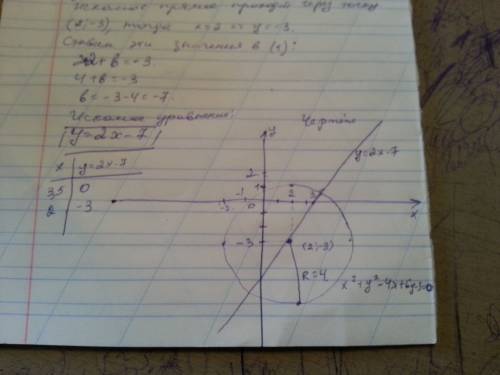 Искомая прямая проходит через точку
(2;-3), тогда x=2 и y=-3.
Ставим эти значения в (1):
2·2+b=-3
4+b=-3
b=-3-4=-7.
Искомое уравнение:
y=2x-7
Чертёж
x | y=2x-7
3,5 | 0
2 | -3
y
y=2x-7
2
1
-3 -1 0 2
x
-3
(2;-3)
R=4